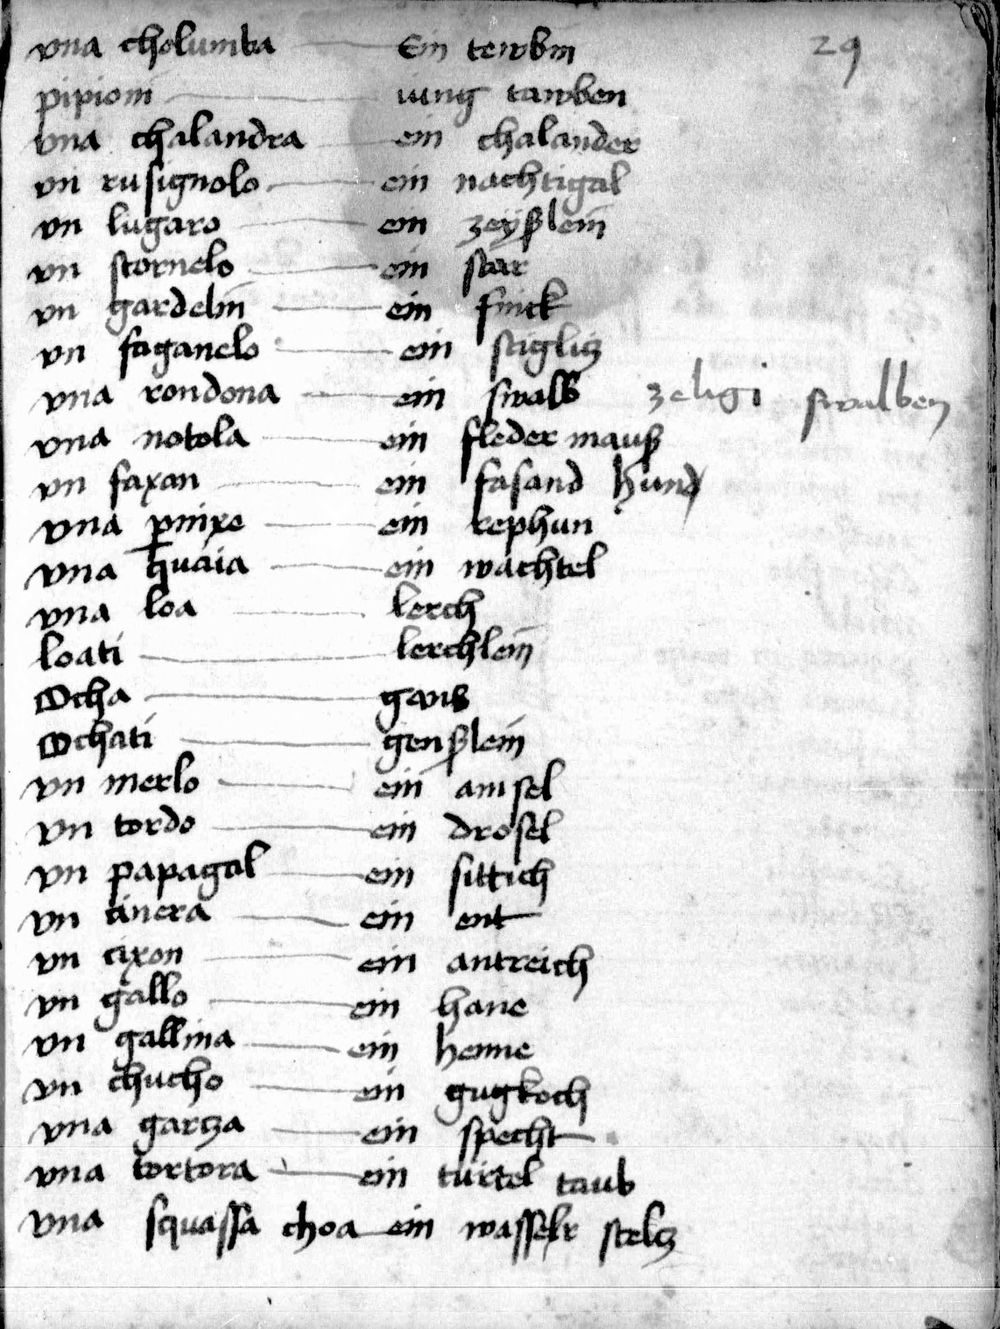 vna cholumba ein tewbin 29
pipioni iung tawben
vna chalandra ein chalander
vn rusignolo ein nachtigal
vn lugaro ein zeyßlein
vn stornelo ein star
vn gardelin ein finck
vn faganelo ein stiglicz
vna rondona ein swalb zeligi swalben
vna notola ein fleder mauß
vn faxan ein fasand hund
vna pnixe ein rephun
vna quaia ein wachtel
vna loa lerch
loati lerchlein
Ocha gans
Ochati genßlein
vn merlo ein amsel
vn tordo ein drosel
vn papagal ein sittich
vn anera ein ent
vn cixon ein antreich
vn gallo ein hane
vn gallina ein henne
vn chucho ein gugkoch
vna garcza ein specht
vna tortora ein turtel taub
vna squassa choa ein wasser stelcz